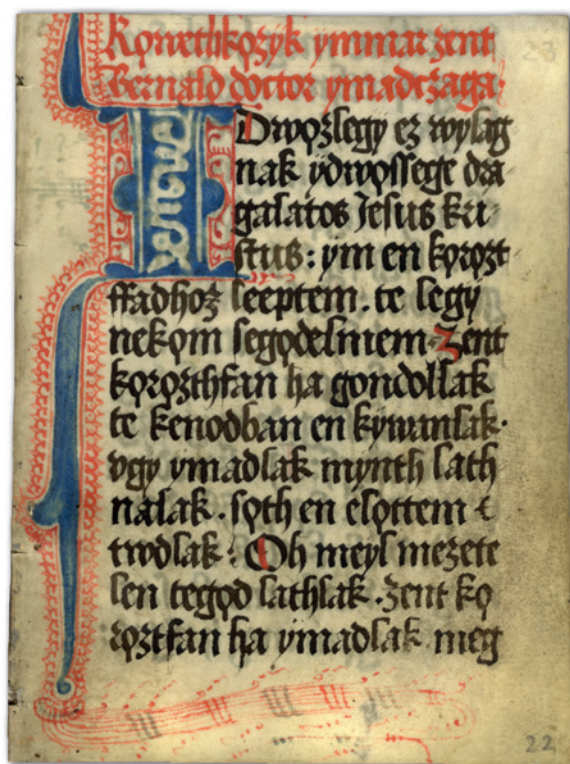 Kǫwethkǫzyk ymmar zent
Bernald doctor ymadczaga·
IDwǫzlegy ez wylag
nak ydwǫssege dra
galatos Jesus kri
stus: ym en kǫrǫzt
ffadhoz leeptem. te legy
nekǫm segǫdelmem zent
kǫrǫzthfan ha gondollak
te kenodban en kywanlak·
vgy ymadlak mynth lath
nalak. sǫth en elǫttem ⁊
twdlak: Oh meyl mezete
len tegǫd lathlak. zent kǫ
rǫztfan ha ymadlak meg
22